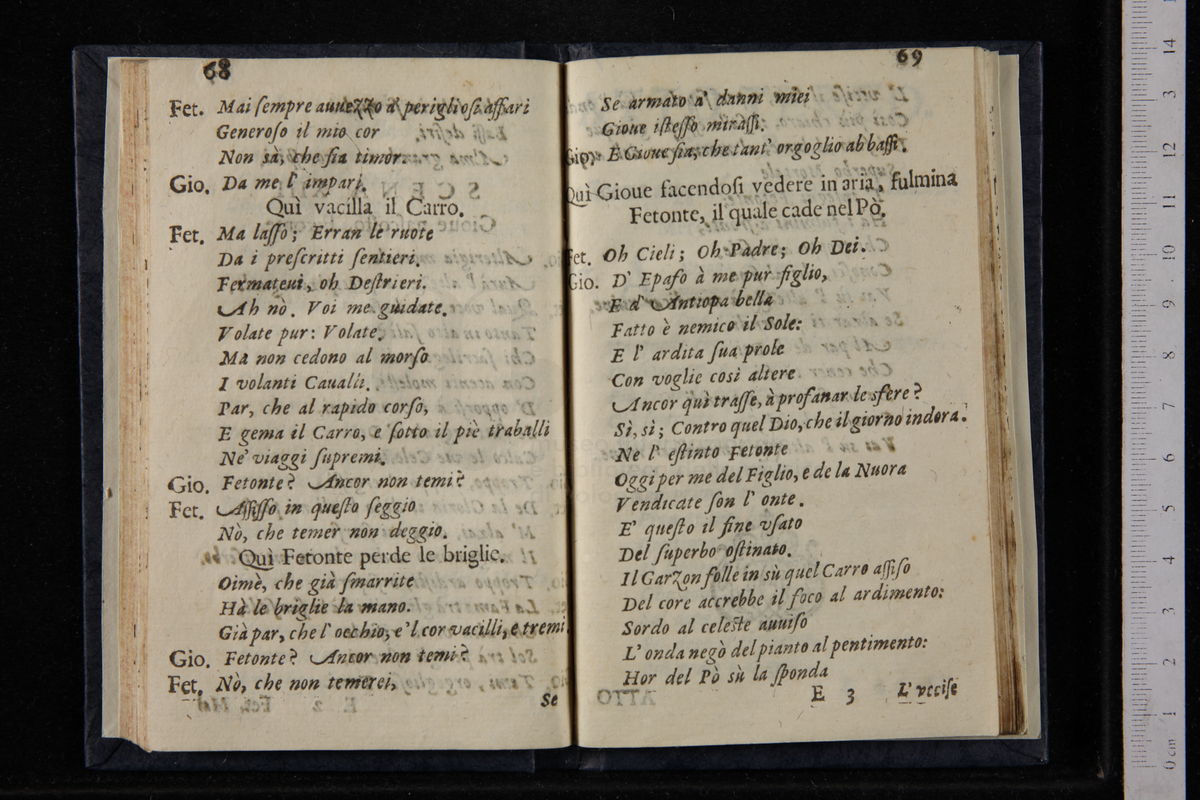 68
Fet. Mai ſempre auuezzo a' periglioſi affari
Generoſo il mio cor
Non sà, che ſia timor.
Gio. Da me l' impari.
Quì vacilla il Carro.
Fet. Ma laſſo; Erran le ruote
Da i preſcritti ſentieri.
Fermateui, oh Deſtrieri.
Ah nò. Voi me guidate.
Volate pur: Volate.
Ma non cedono al morſo
I volanti Caualli.
Par, che al rapido corſo,
E gema il Carro, e ſotto il piè traballi
Ne' viaggi ſupremi.
Gio. Fetonte? Ancor non temi?
Fet. Aſſiſſo in queſto ſeggio
Nò, che temer non deggio.
Quì Fetonte perde le briglie.
Oimè, che già ſmarrite
Hà le briglie la mano.
Già par, che l' occhio, e'l cor vacilli, e tremi.
Gio. Fetonte? Ancor non temi?
Fet. Nò, che non temerei,
Se
69
Se armato a' danni miei
Gioue iſteſſo miraſſi.
Gio. E Gioue ſia, che tant' orgoglio abbaſſi.
Quì Gioue facendoſi vedere in aria, fulmina
Fetonte, il quale cade nel Pò.
Fet. Oh Cieli; Oh Padre; Oh Dei.
Gio. D' Epafo à me pur figlio,
E d' Antiopa bella
Fatto è nemico il Sole:
E l' ardita ſua prole
Con voglie così altere
Ancor quì traſſe, à profanar le sfere?
Sì, sì; Contro quel Dio, che il giorno indora.
Ne l' eſtinto Fetonte
Oggi per me del Figlio, e de la Nuora
Vendicate ſon l' onte.
E' queſto il fine vſato
Del ſuperbo oſtinato.
Il Garzon folle in sù quel Carro aſſiſo
Del core accrebbe il foco al ardimento:
Sordo al celeſte auuiſo
L' onda negò del pianto al pentimento:
Hor del Pò sù la ſponda
E 3 L' vcciſe